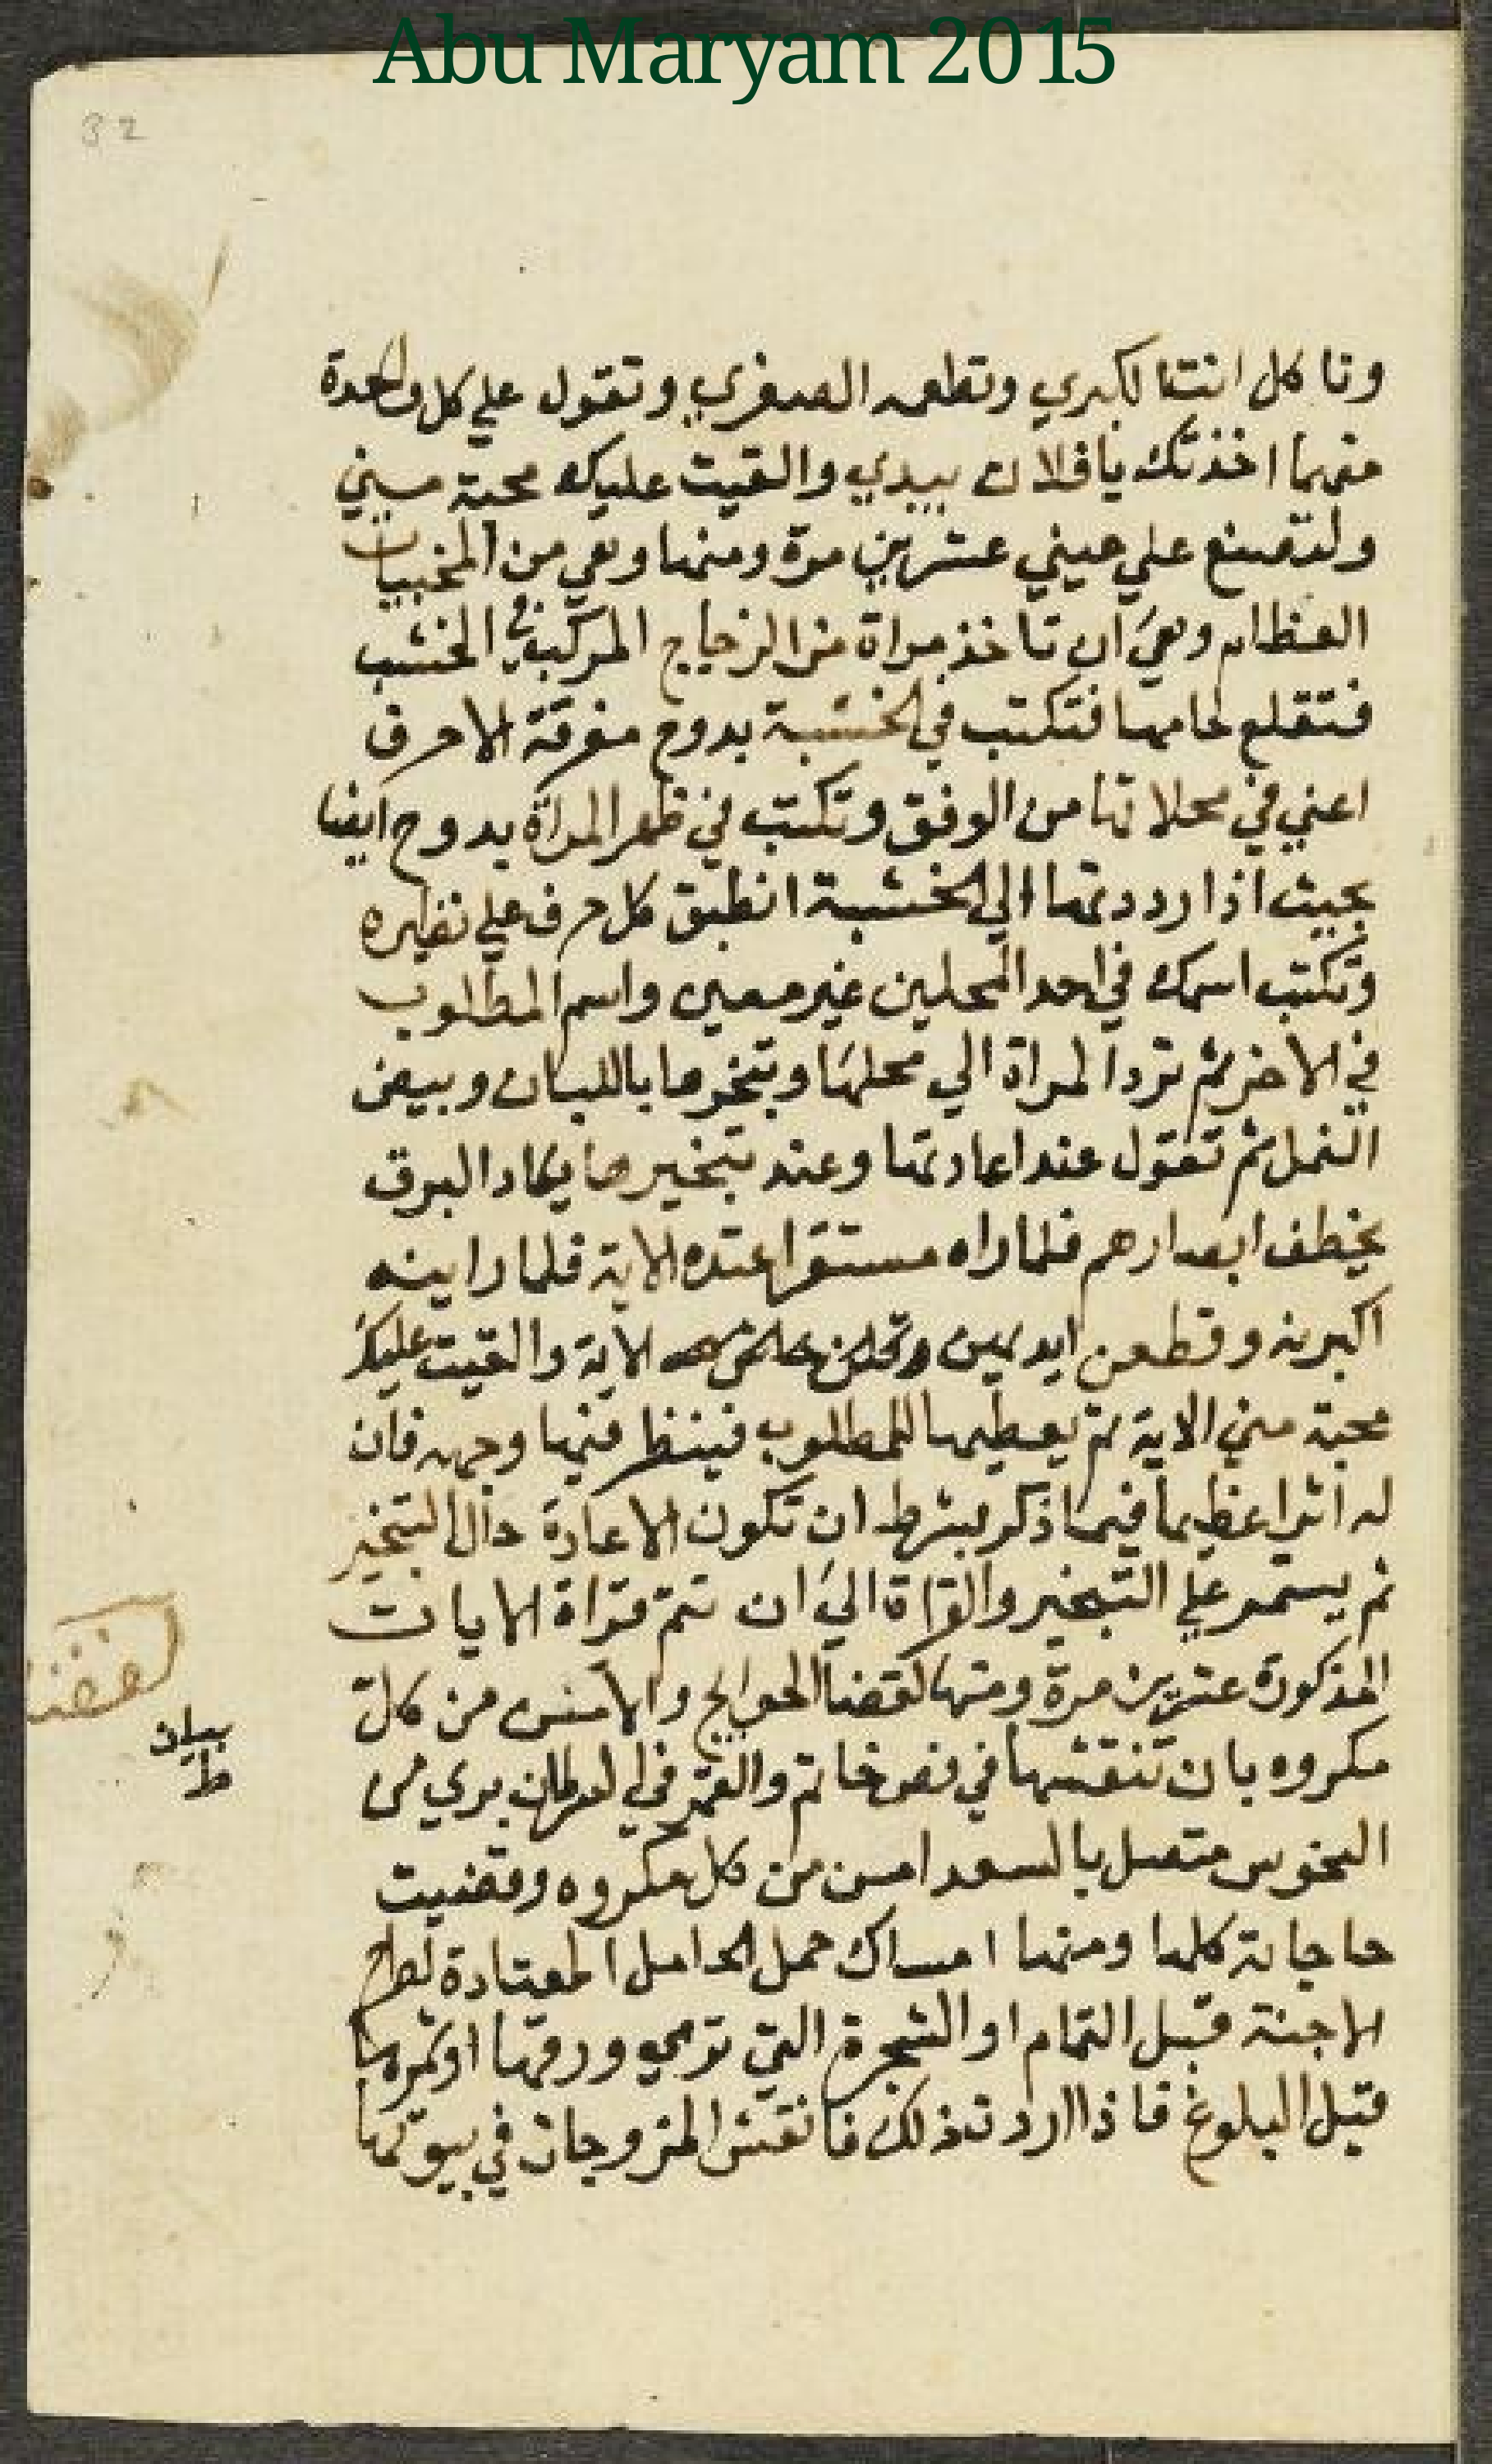 Abu Maryam 2015
32
وتا كل انت الكبري وتطعمه الصغري وتقول علي كل واحدة
منهما اخذتك يا فلان بيدي والقيت عليك محبة مني
ولتصنع علي عيني عشرين مرة ومنها وهي من المخبيات
العظام وهي ان تاخذ مراة من الزجاج المركب في الخشب
فتقلع لحامها فتكتب في الخشبة بدوح مفرقة الاحرف
اعني في محلاتها من الوفق وتكتب في ظهر المراة بدوح ايضا
بحيث اذا رددتها الي الخشبة انطبق كل حرف علي نظيره
وتكتب اسمك في احد المحلين غير معين واسم المطلوب
في الاخر ثم ترد المراة الي محلها وتبخرها باللبان وبيض
النمل ثم تقول عند اعادتها وعند تبخيرها يكاد البرق
يخطف ابصارهم فلما راه مستقرا عنده الاية فلما راينه
اكبرنه وقطعن ايديهن الاية والقيت عليك
محبة مني الاية ثم يعطيها للمطلوب فينظر فيها وجهه فان
له اثرا عظيما فيما ذكر بشرط ان تكون الاعادة حال التبخير
ثم يستمر علي التبخير والقراة الي ان تتم قراة الايات
المذكورة عشرين مرة ومنها لقضا الحوايج والامن من كل
مكروه بان تنقشها في فص خاتم والقمر في السرطان بري من
النحوس متصل بالسعد امن من كل مكروه وقضيت
حاجاته كلها ومنها امساك حمل الحامل المعتادة لطرح
الاجنة قبل التمام او الشجرة التي ترمي ورقها او ثمرها
قبل البلوغ فاذا اردت ذلك فانقش المزوجات في بيوتها
بيان
ط